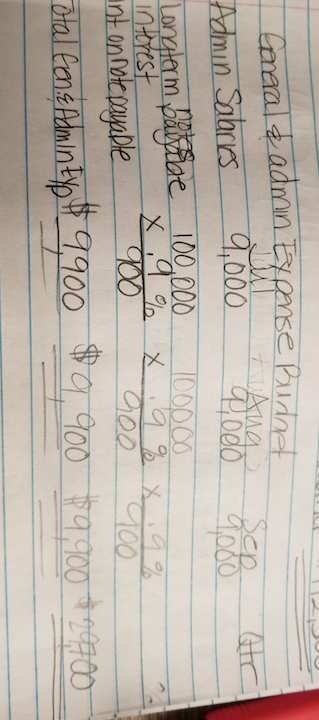 General & admin Expense Budget
Jul Aug Sep Qtr
Admin Salaries 9,000 9,000 9,000
Longterm note payable 100,000 100,000
interest X .9% X .9% X .9%
int on note payable 900 900 900
Total Gen & Admin Exp $9,900 $9,900 $9,900 $29,700